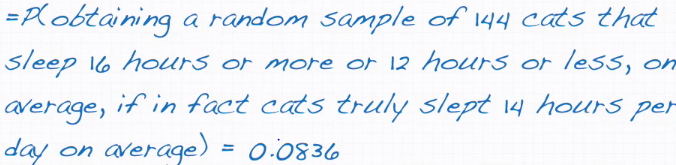 =P(obtaining a random sample of 144 cats that
sleep 16 hours or more or 12 hours or less, on
average, if in fact cats truly slept 14 hours per
day on average) = 0.0836